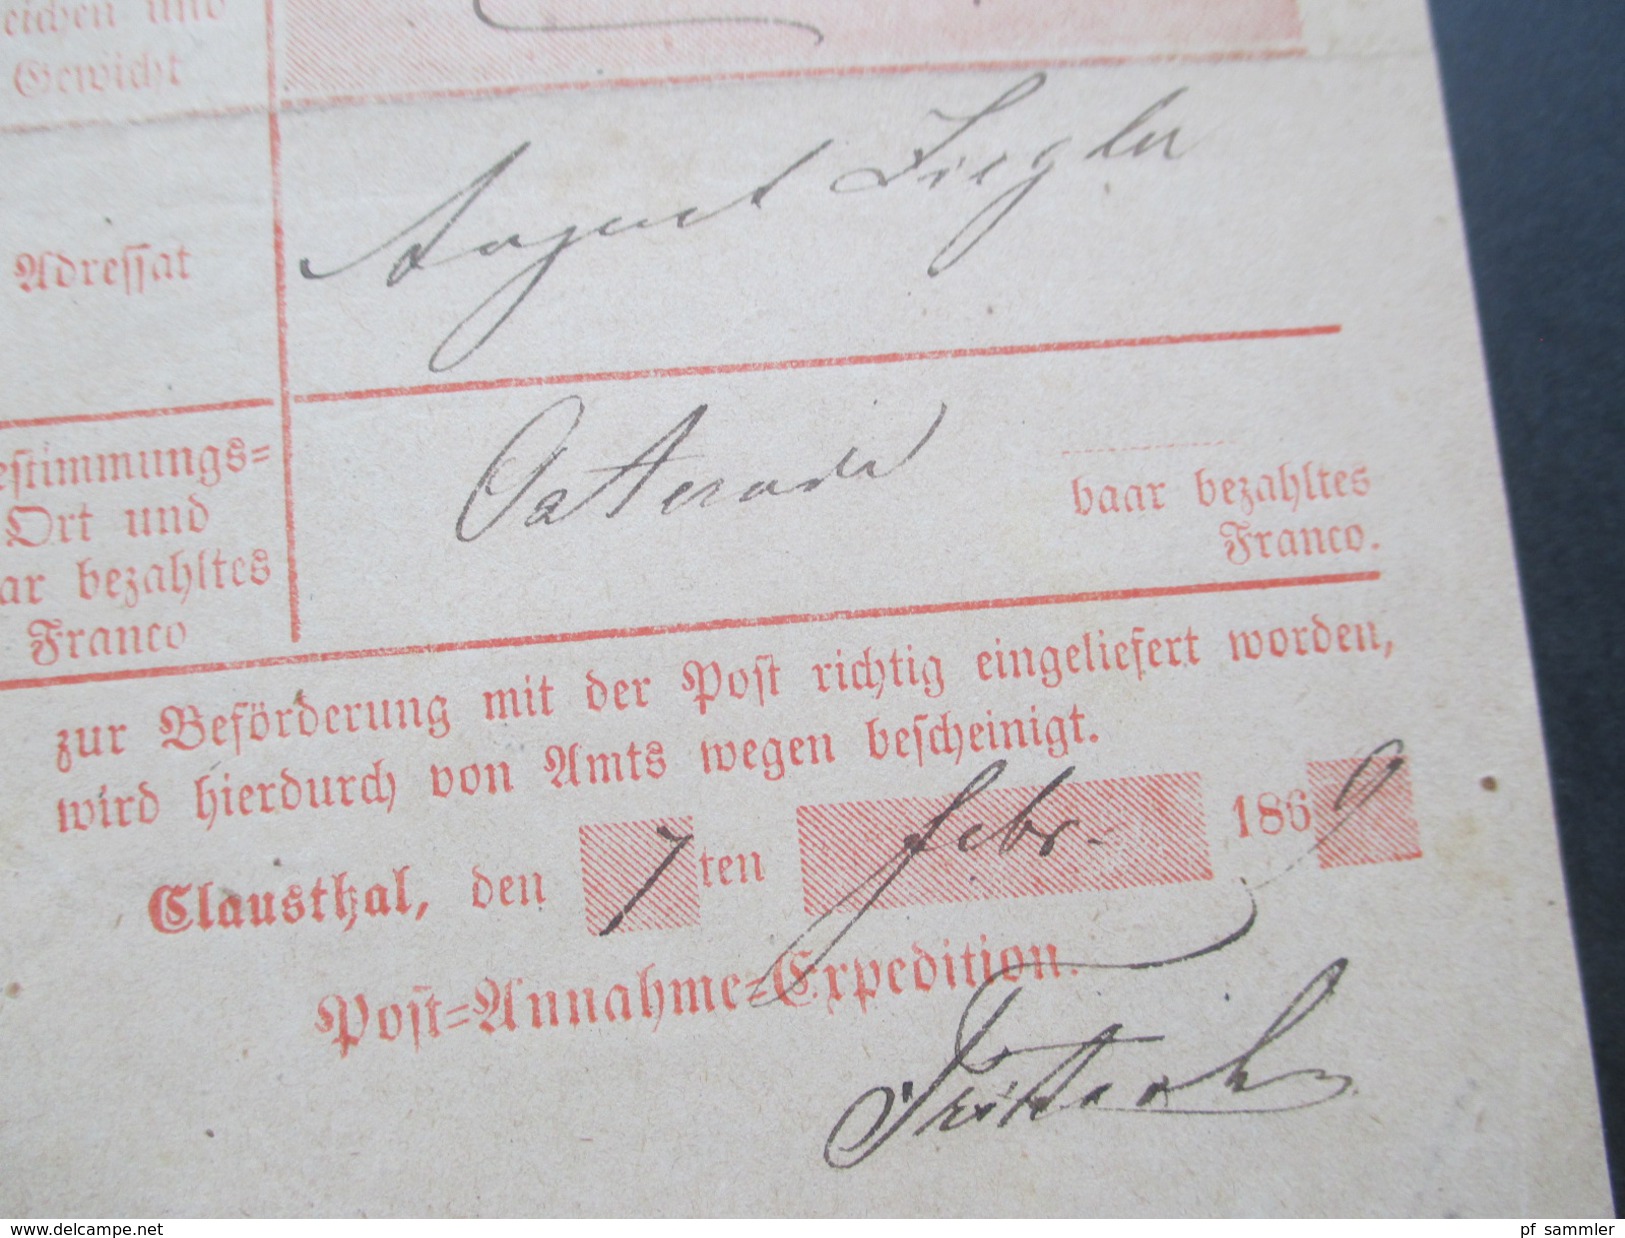 eichen und
Gewicht
Adressat
August Ziegler
estimmungs=
Ort und
ar bezahltes
Franco
Osterode
baar bezahltes
Franco.
zur Beförderung mit der Post richtig eingeliefert worden,
wird hierdurch von Amts wegen bescheinigt.
Clausthal, den 7ten Febr. 1869
Post=Annahme=Expedition.
www.delcampe.net
pf_sammler